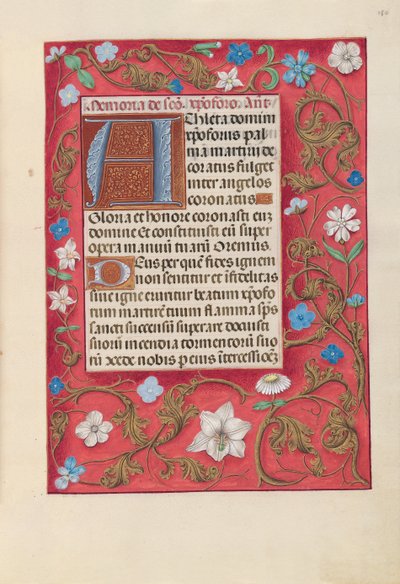 Memoria de sc̄o. xp̄oforo. Anͭ
Athleta domini
xp̄oforus pal
ma martirii de
coratus fulget
inter angelos
coronatus
Gloria et honore coronasti eū
domine Et constituisti eū super
opera manuū tuarū Oremus.
Deus per quē fides ignem
non sentitur et īfidelitas
sine igne exuritur beatum xp̄ofo
rum martirem tuum flamma sp̄s
sancti succensū superare docuisti
suorū incendia tormentorū suo
rū ɔ̄cede nobis p eius īt̄cessioēz